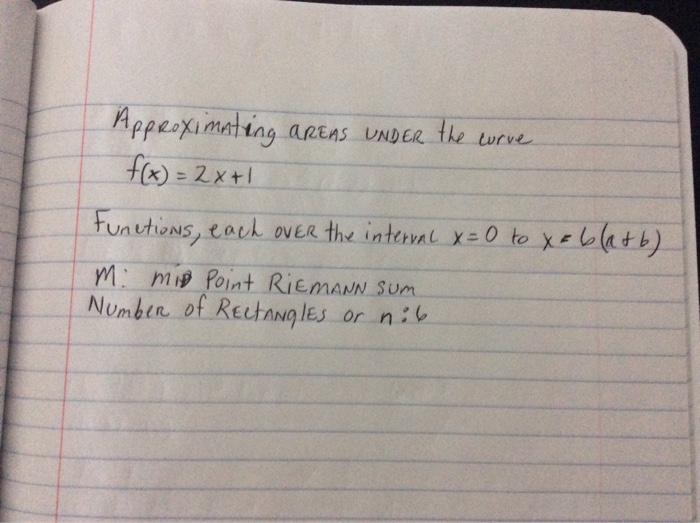 Approximating AREAS UNDER the curve
f(x) = 2x+1
Functions, each OVER the interval x=0 to x=6(a+b)
M: mid Point RIEMANN SUM
Number of RECTANGLES or n:6